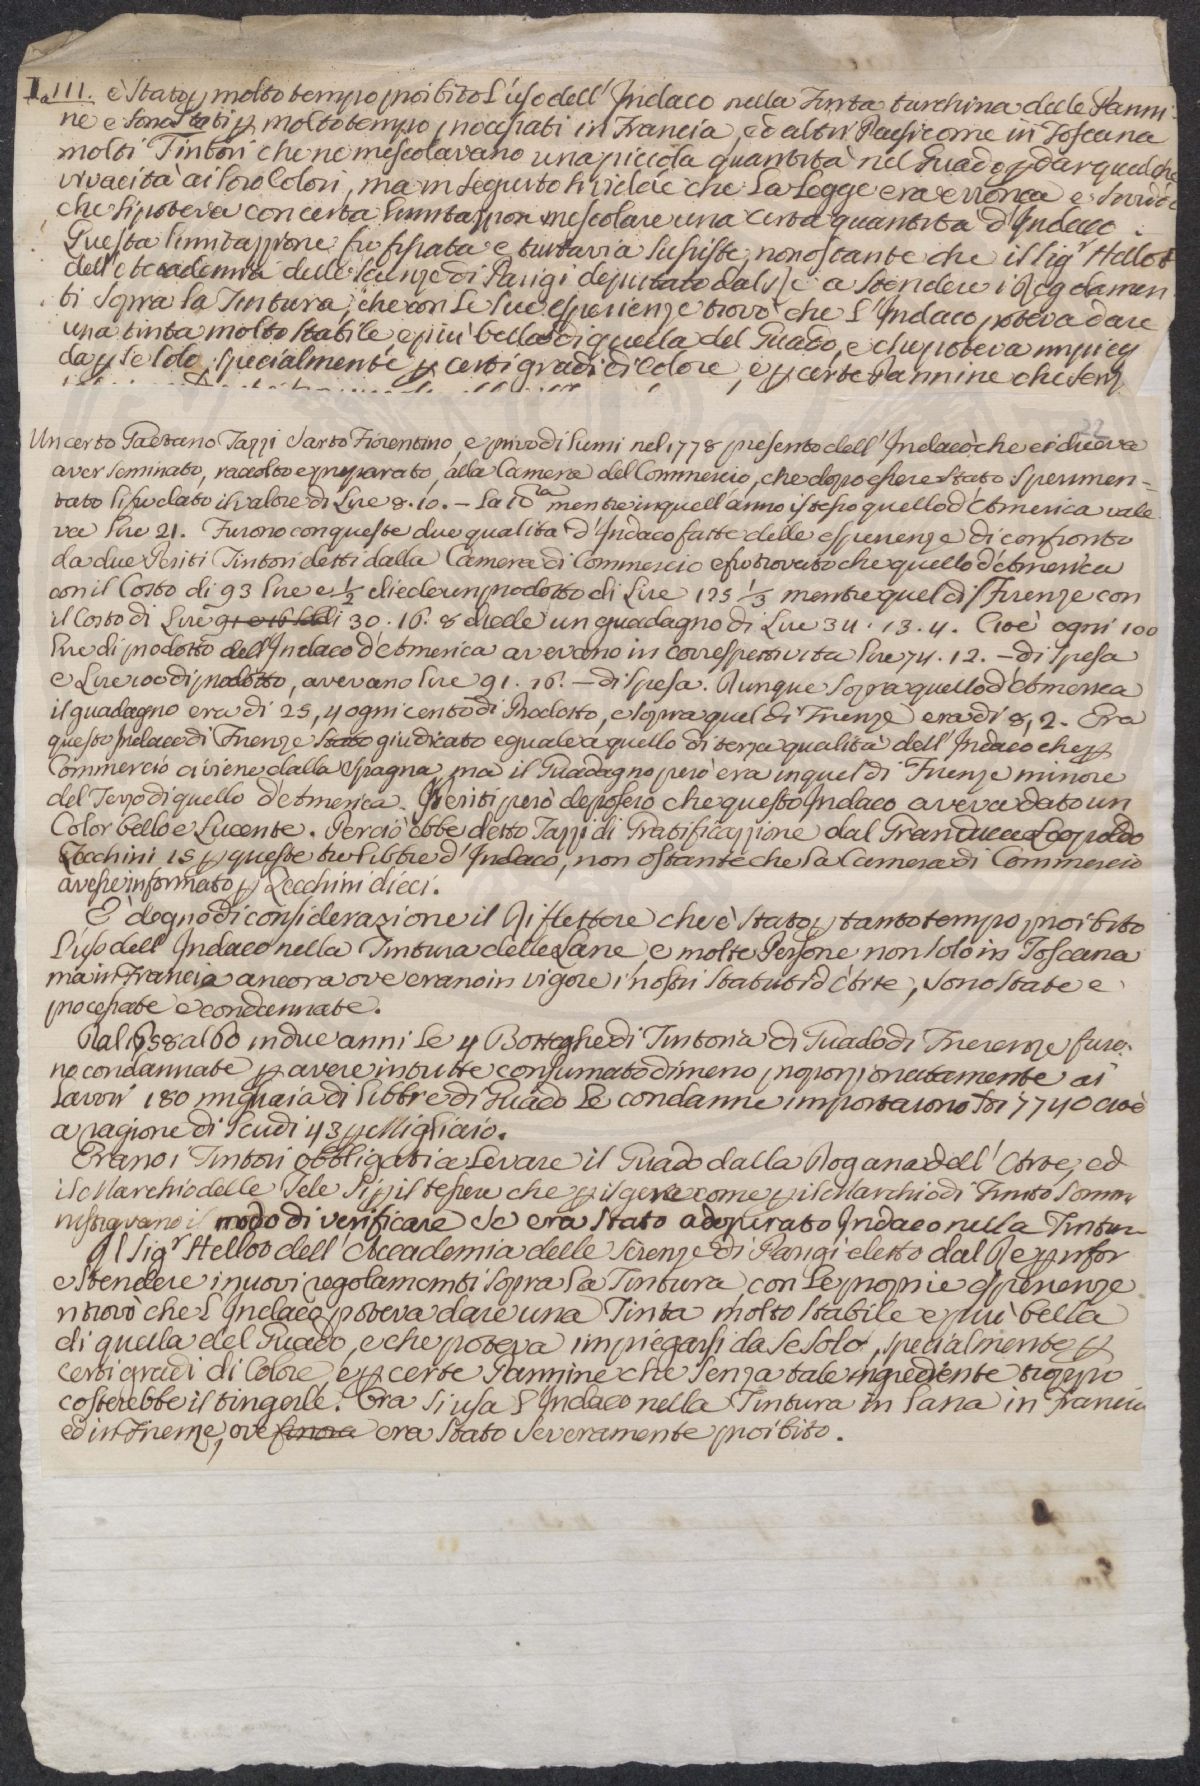 III. è stato p molto tempo proibito l'uso dell'Indaco nella Tinta turchina delle Panni-
ne e sono stati p molto tempo processati in Francia, ed altri Paesi come in Toscana
molti Tintori che ne mescolavano una piccola quantità nel Guado p dar qualche
vivacità ai loro Colori, ma in seguito si vidde che la Legge era erronea e si vidde
che si poteva con certa limitazzion mescolare una certa quantità d'Indaco.
Questa limitazzione fu fissata e tuttavia sussiste, nonostante che il Sigr Hellot
dell'Accademia delle Scienze di Parigi deputato dal Re a stendere i Regolamen
ti sopra la Tintura, che con le sue esperienze trovò che l'Indaco poteva dare
una tinta molto stabile e più bella di quella del Guado, e che poteva impieg
da p se solo, specialmente p certi gradi di Colore, e p certe Pannine che senz
22
Un certo Gaetano Tazzi Sarto Fiorentino, e privo di lumi nel 1778 presentò dell'Indaco che ei diceva
aver seminato, raccolto e preparato, alla Camera del Commercio, che dopo essere stato sperimen=
tato li fu dato il valore di Lire 8.10.- la lb mentre in quell'anno istesso quello d'America vale
va lire 21. Furono con queste due qualità d'Indaco fatte delle esperienze di confronto
da due Periti Tintori eletti dalla Camera di Commercio e fu trovato che quello d'America
con il Costo di 93 lire e ½ diede un prodotto di Lire 125 ⅓ mentre quel di Firenze con
il Costo di Lire 30.16.8 diede un guadagno di Lire 34.13.4. Cioè ogni 100
lire di prodotto dell'Indaco d'America avevano in correspettività lire 74.12.- di spesa
e Lire 100 di prodotto, avevano lire 91.16.- di spesa. Dunque sopra quello d'America
il guadagno era di 25,4 ogni cento di Prodotto, e sopra quel di Firenze era di 8,2. Era
questo Indaco di Firenze stato giudicato eguale a quello di terza qualità dell'Indaco che p
Commercio ci viene dalla Spagna, ma il Guadagno però era in quel di Firenze minore
del Terzo di quello d'America. I Periti però deposero che questo Indaco aveva dato un
Color bello e Lucente. Perciò ebbe detto Tazzi di Gratificazzione dal Granduca Leopoldo
Zecchini 15 p queste tre libbre d'Indaco, non ostante che la Camera di Commercio
avesse informato p Zecchini dieci.
E' degno di considerazione il Riflettere che è stato p tanto tempo proibito
l'uso dell'Indaco nella Tintura delle Lane, e molte Persone non solo in Toscana
ma in Francia ancora ove erano in vigore i nostri Statuti d'Arte, sono state e
processate e condannate.
Dal 658 al 60 in due anni le 4 Botteghe di Tintoria di Guado di Firenze furo-
no condannate p avere in tutte consumato di meno proporzionatamente ai
Lavori 180 migliaia di libbre di Guado le condanne importarono 7740 cioè
a ragione di Scudi 43 p Migliaio.
Erano i Tintori obbligati a Levare il Guado dalla Dogana dell'Arte, ed
il Marchio delle Tele p il tessere che p il genere come p il Marchio di Tinto Somm
nistravano il modo di verificare se era stato adoprato Indaco nella Tintur
Il Sigr Hellot dell'Accademia delle Scienze di Parigi eletto dal Re p infor
e stendere i nuovi regolamenti sopra la Tintura, con le proprie esperienze
ritrovò che l'Indaco poteva dare una Tinta molto stabile e più bella
di quella del Guado, e che poteva impiegarsi da se solo, specialmente p
certi gradi di Colore, e p certe Pannine che senza tale ingrediente troppo
costerebbe il tingerle. Ora si usa l'Indaco nella Tintura in Lana in Francia
ed in Firenze, ove finora era stato severamente proibito.